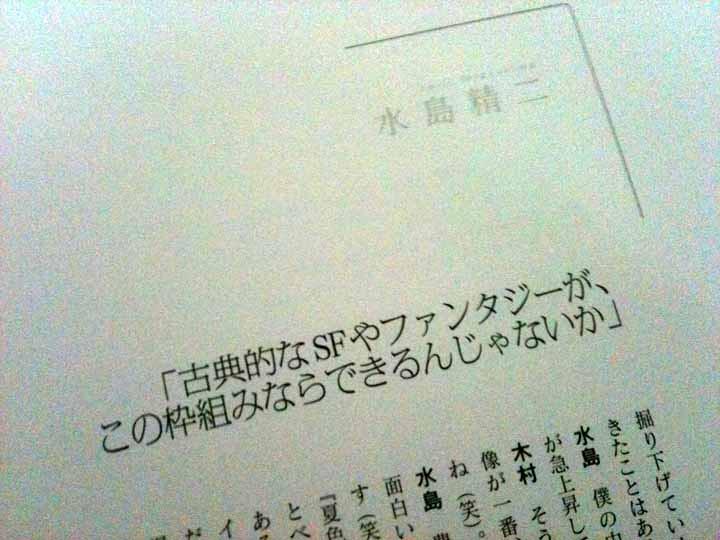 水島精二
「古典的なSFやファンタジーが、
この枠組みならできるんじゃないか」
掘り下げてい
きたことはあ
水島 僕の中
が急上昇し
木村 そう
像が一番、
ね(笑)。
水島
面白い
す(笑
『夏色
とべ
ある
イ
だ